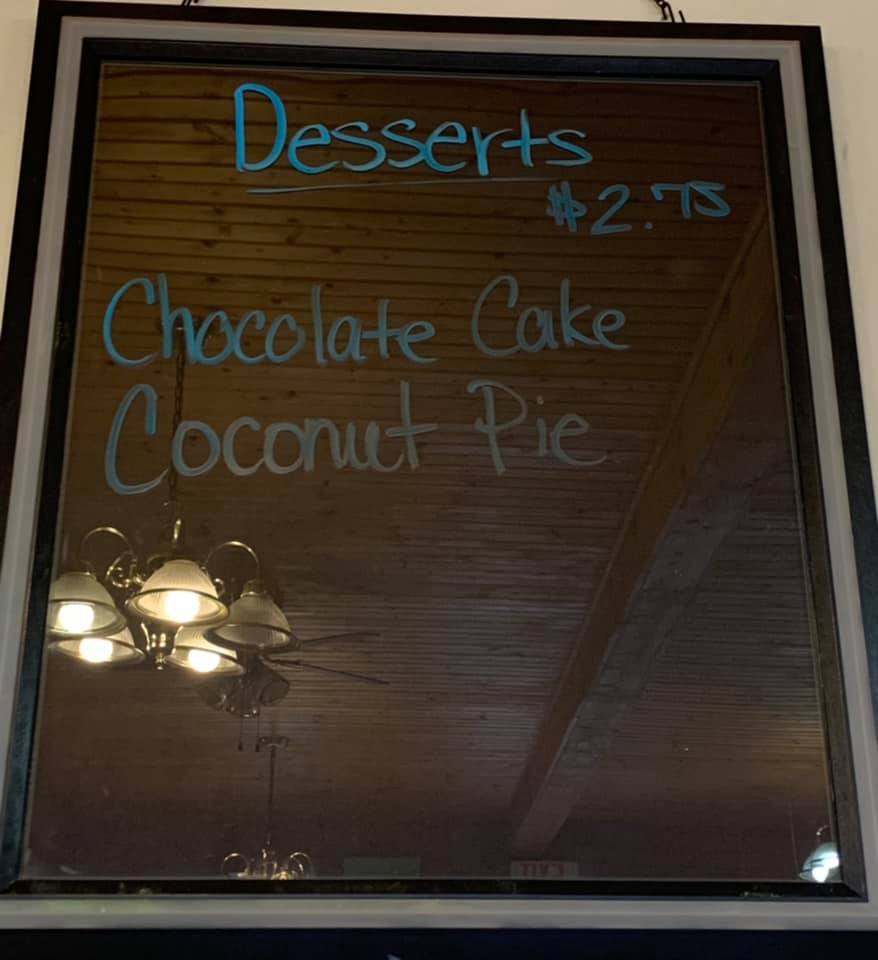 Desserts
$2.75
Chocolate Cake
Coconut Pie